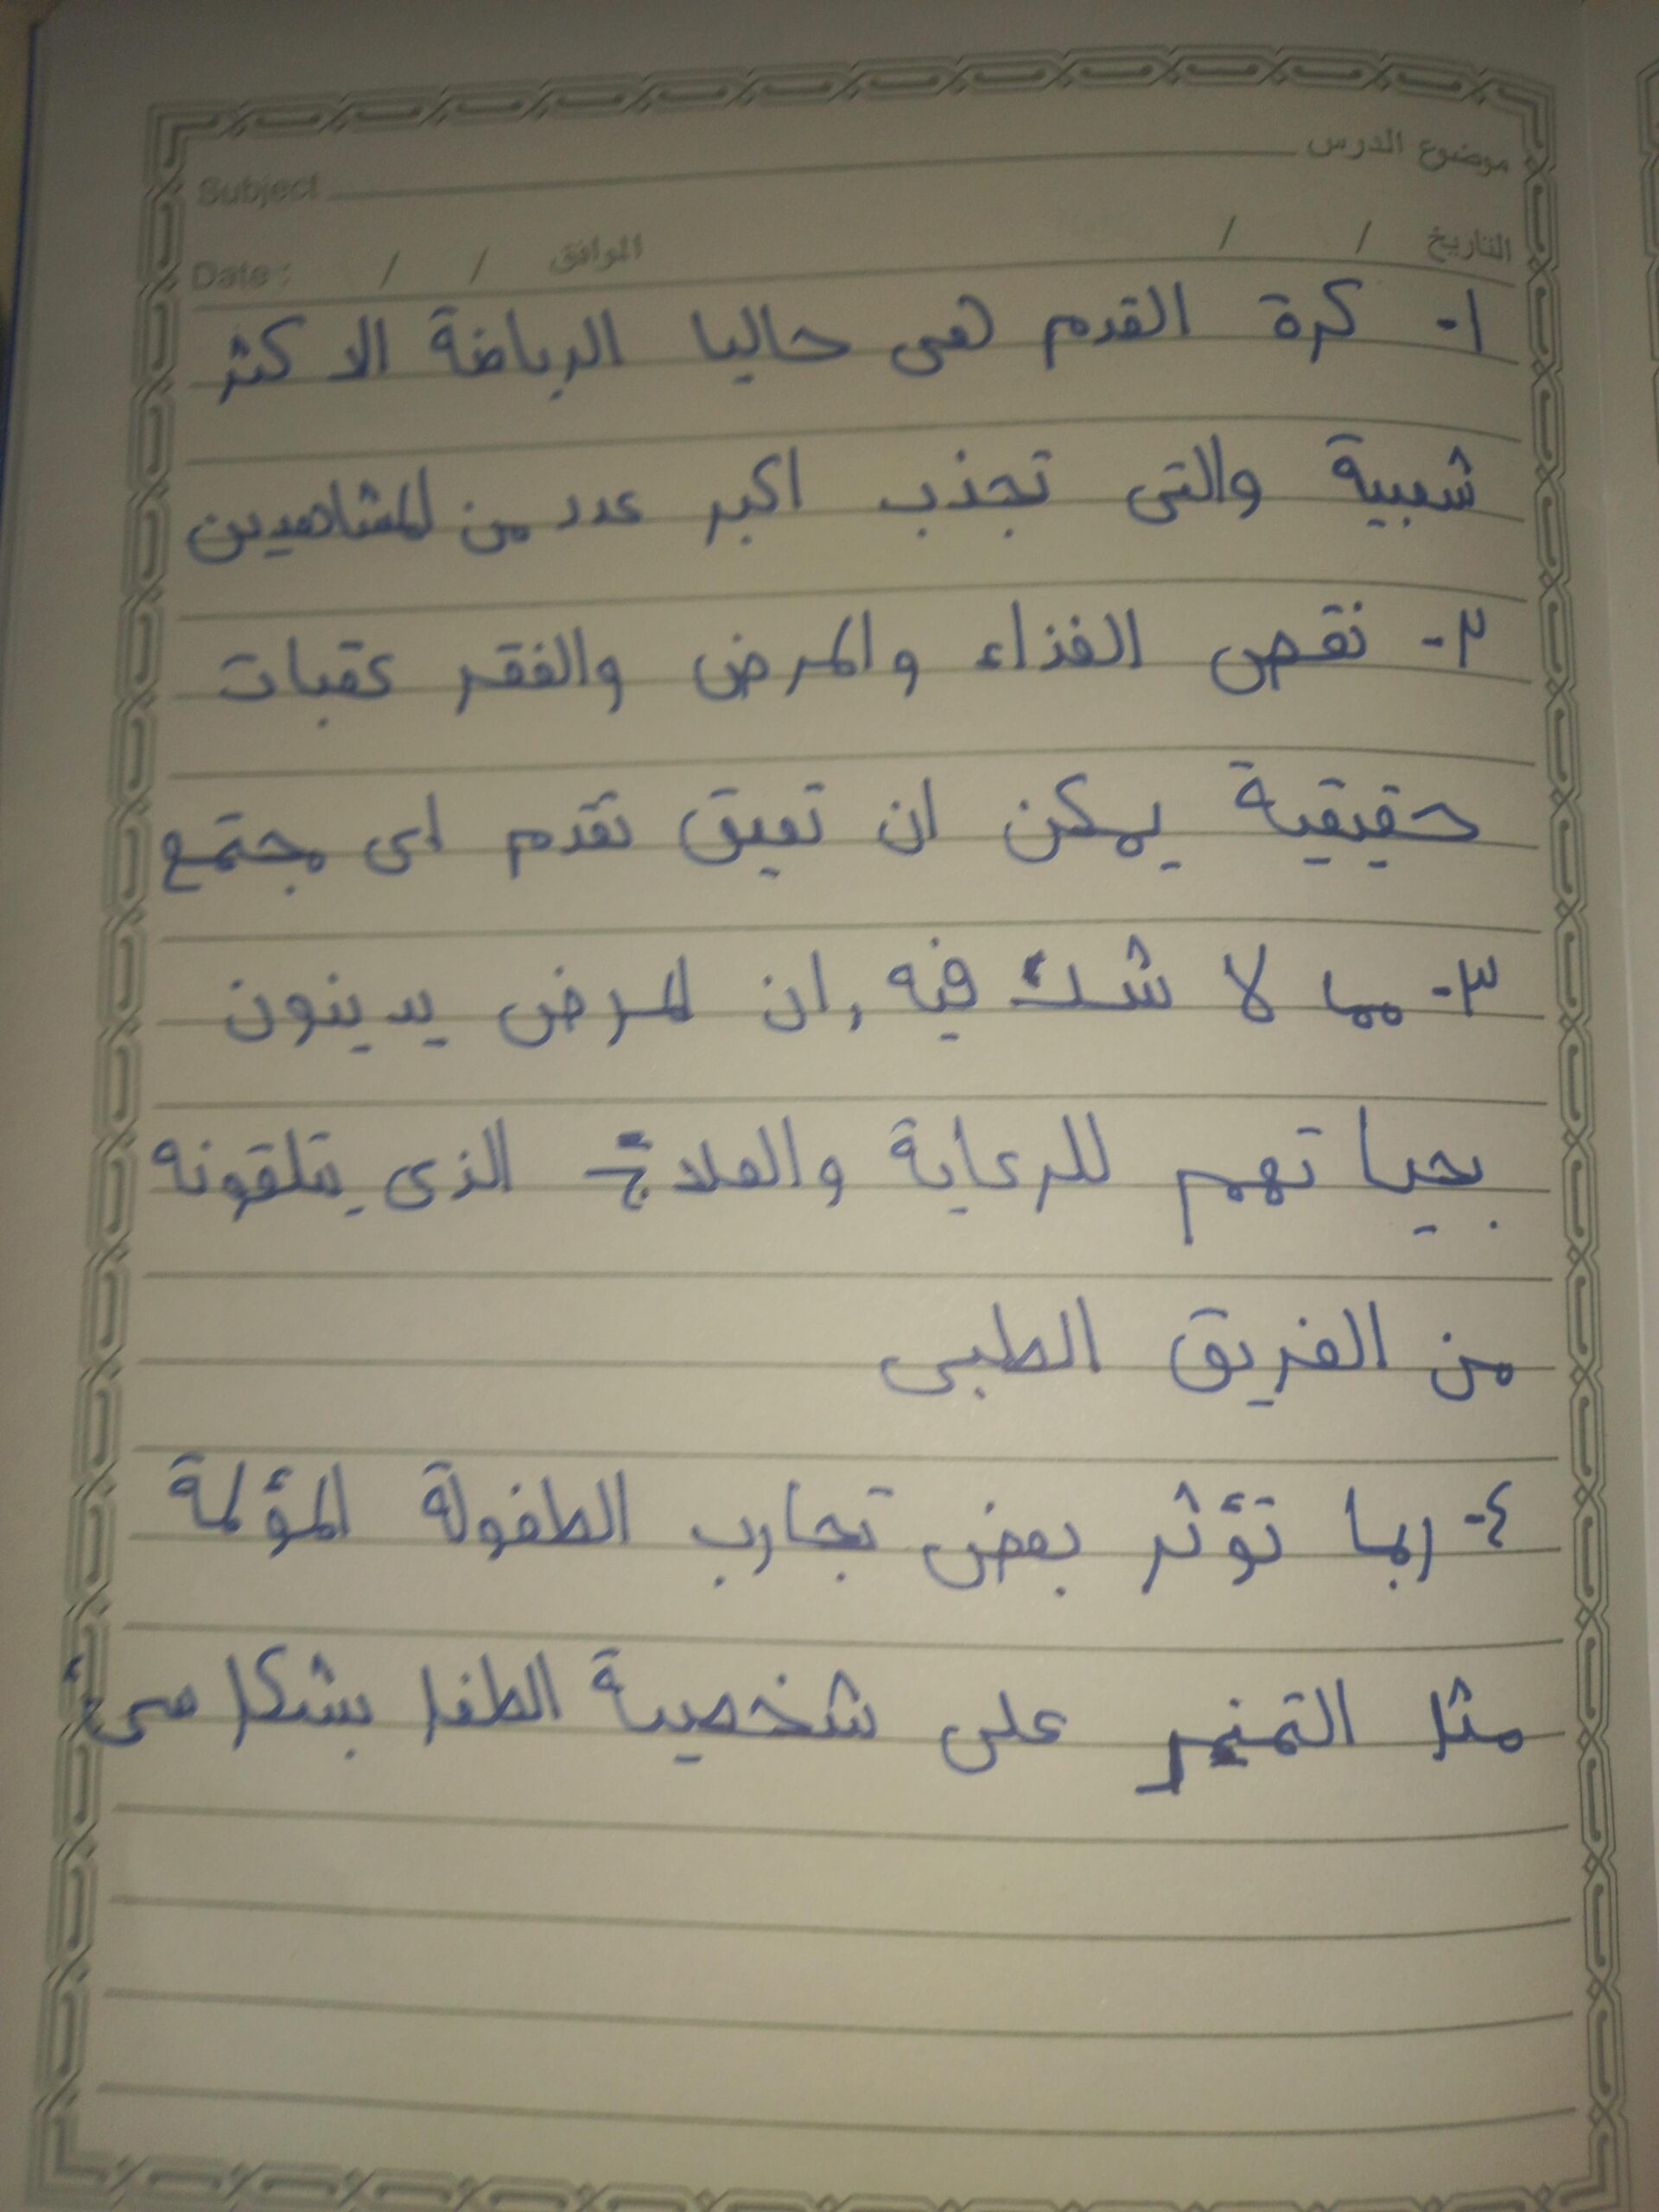 موضوع الدرس Subject
التاريخ / / الموافق / / Date :
١- كرة القدم هى حاليا الرياضة الاكثر
شعبية والتى تجذب اكبر عدد من المشاهدين
٢- نقص الغذاء والمرض والفقر عقبات
حقيقية يمكن ان تعيق تقدم اى مجتمع
٣- مما لا شك فيه ,ان المرض يدينون
بحياتهم للرعاية والعلاج الذى يتلقونه
من الفريق الطبى
٤- ربما تؤثر بعض تجارب الطفولة المؤلمة
مثل التمنر على شخصية الطفل بشكل سىء